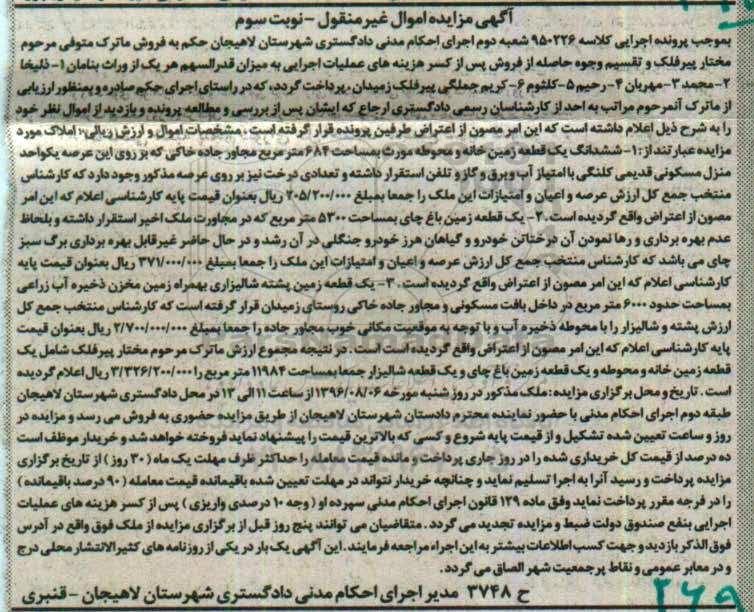 آگهی مزایده اموال غیر منقول - نوبت سوم
بموجب پرونده اجرایی کلاسه ۹۵۰۲۲۶ شعبه دوم اجرای احکام مدنی دادگستری شهرستان لاهیجان حکم به فروش ماترک متوفی مرحوم
مختار پیرفلک و تقسیم وجوه حاصله از فروش پس از کسر هزینه های عملیات اجرایی به میزان قدرالسهم هر یک از وراث بنامان ۱- ذلیخا
۲- محمد ۳- مهربان ۴- رحیم ۵- کلثوم ۶- کریم جملگی پیرفلک زمیدان، پرداخت گردد، که در راستای اجرای حکم صادره و بمنظور ارزیابی
از ماترک آنمرحوم مراتب به احد از کارشناسان رسمی دادگستری ارجاع که ایشان پس از بررسی و مطالعه پرونده و بازدید از اموال نظر خود
را به شرح ذیل اعلام داشته است که این امر مصون از اعتراض طرفین پرونده قرار گرفته است. مشخصات اموال و ارزش ریالی: املاک مورد
مزایده عبارتند از: ۱- ششدانگ یک قطعه زمین خانه و محوطه مورث بمساحت ۶۸۴ متر مربع مجاور جاده خاکی که بر روی این عرصه یکواحد
منزل مسکونی قدیمی کلنگی با امتیاز آب و برق و گاز و تلفن استقرار داشته و تعدادی درخت نیز بر روی عرصه مذکور وجود دارد که کارشناس
منتخب جمع کل ارزش عرصه و اعیان و امتیازات این ملک را جمعا بمبلغ ۲۰۵/۲۰۰/۰۰۰ ریال بعنوان قیمت پایه کارشناسی اعلام که این امر
مصون از اعتراض واقع گردیده است. ۲- یک قطعه زمین باغ چای بمساحت ۵۳۰۰ متر مربع که در مجاورت ملک اخیر استقرار داشته و بلحاظ
عدم بهره برداری و رها نمودن آن درختان خودرو و گیاهان هرز خودرو جنگلی در آن رشد و در حال حاضر غیر قابل بهره برداری برگ سبز
چای می باشد که کارشناس منتخب جمع کل ارزش عرصه و اعیان و امتیازات این ملک را جمعا بمبلغ ۳۷۱/۰۰۰/۰۰۰ ریال بعنوان قیمت پایه
کارشناسی اعلام که این امر مصون از اعتراض واقع گردیده است. ۳- یک قطعه زمین پشته شالیزاری بهمراه زمین مخزن ذخیره آب زراعی
بمساحت حدود ۶۰۰۰ متر مربع در داخل بافت مسکونی و مجاور جاده خاکی روستای زمیدان قرار گرفته است که کارشناس منتخب جمع کل
ارزش پشته و شالیزار را با محوطه ذخیره آب و با توجه به موقعیت مکانی خوب مجاور جاده را جمعا بمبلغ ۲/۷۰۰/۰۰۰/۰۰۰ ریال بعنوان قیمت
پایه کارشناسی اعلام که این امر مصون از اعتراض واقع گردیده است است. در نتیجه مجموع ارزش ماترک مرحوم مختار پیرفلک شامل یک
قطعه زمین خانه و محوطه و یک قطعه زمین باغ چای و یک قطعه شالیزار جمعا بمساحت ۱۱۹۸۴ متر مربع را ۳/۳۲۶/۲۰۰/۰۰۰ ریال اعلام گردیده
است. تاریخ و محل برگزاری مزایده: ملک مذکور در روز شنبه مورخه ۱۳۹۶/۰۸/۰۶ از ساعت ۱۱ الی ۱۳ در محل دادگستری شهرستان لاهیجان
طبقه دوم اجرای احکام مدنی با حضور نماینده محترم دادستان شهرستان لاهیجان از طریق مزایده حضوری به فروش می رسد و مزایده در
روز و ساعت تعیین شده تشکیل و از قیمت پایه شروع و کسی که بالاترین قیمت را پیشنهاد نماید فروخته خواهد شد و خریدار موظف است
ده درصد از قیمت کل خریداری شده را در روز جاری پرداخت و مانده قیمت معامله را حداکثر ظرف مهلت یک ماه (۳۰ روز) از تاریخ برگزاری
مزایده پرداخت و رسید آنرا به اجرا تسلیم نماید و چنانچه خریدار نتواند در مهلت تعیین شده باقیمانده قیمت معامله (۹۰ درصد باقیمانده)
را در فرجه مقرر پرداخت نماید وفق ماده ۱۲۹ قانون اجرای احکام مدنی سپرده او (وجه ۱۰ درصدی واریزی) پس از کسر هزینه های عملیات
اجرایی بنفع صندوق دولت ضبط و مزایده تجدید می گردد. متقاضیان می توانند پنج روز قبل از برگزاری مزایده از ملک فوق واقع در آدرس
فوق الذکر بازدید و جهت کسب اطلاعات بیشتر به این اجراء مراجعه فرمایند. این آگهی یک بار در یکی از روزنامه های کثیرالانتشار محلی درج
و در معابر عمومی و نقاط پرجمعیت شهر الصاق می گردد.
ح ۳۷۴۸ مدیر اجرای احکام مدنی دادگستری شهرستان لاهیجان - قنبری